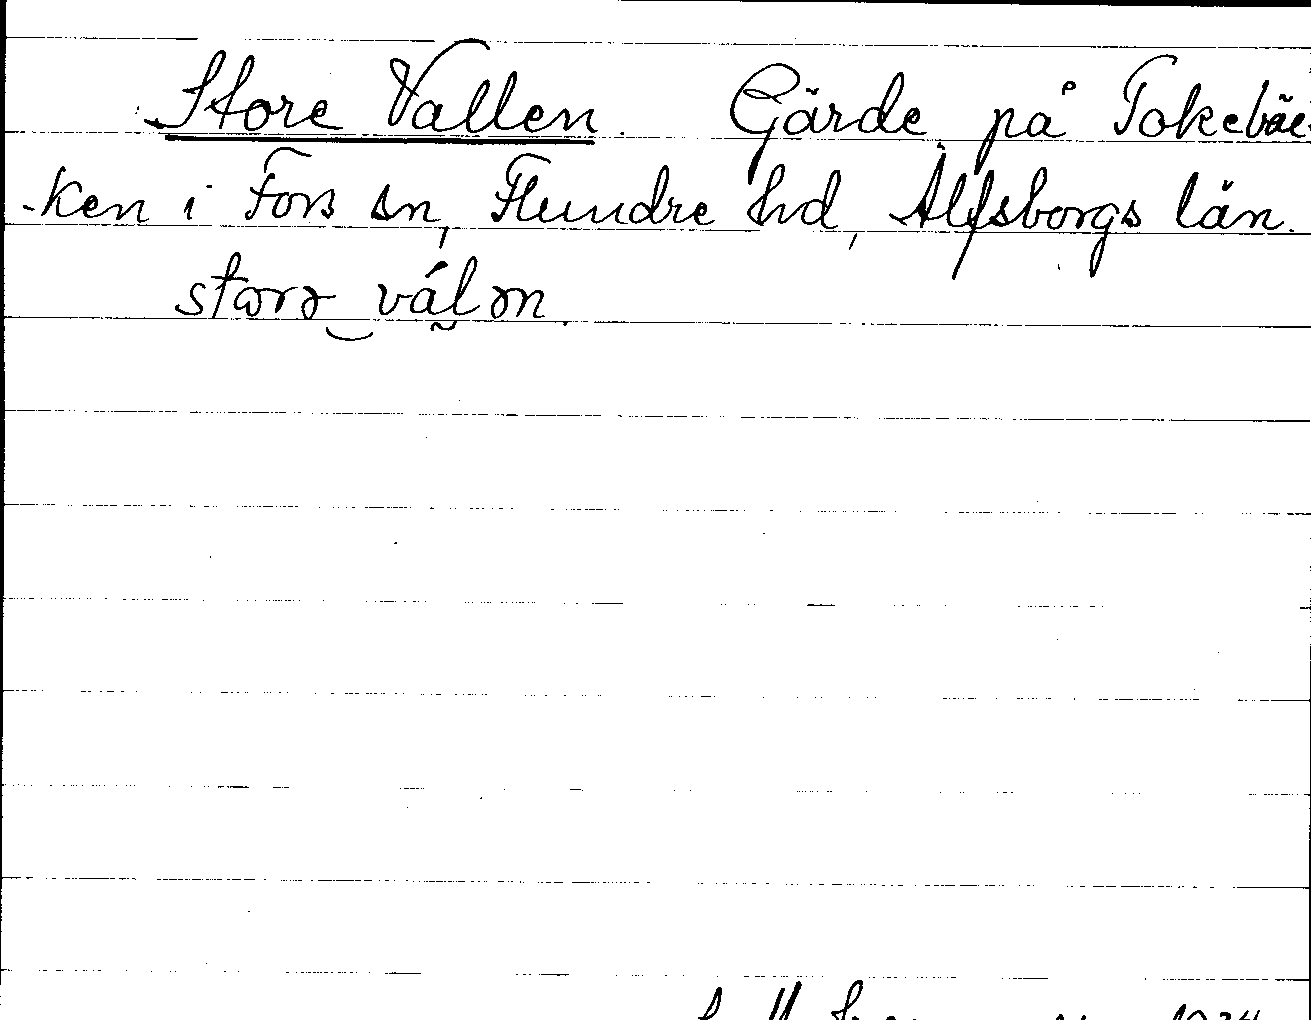 Store Vallen. Gärde på Tokebäc-
-ken i Fors sn, Flundre hd, Älfsborgs län.
storə válən.